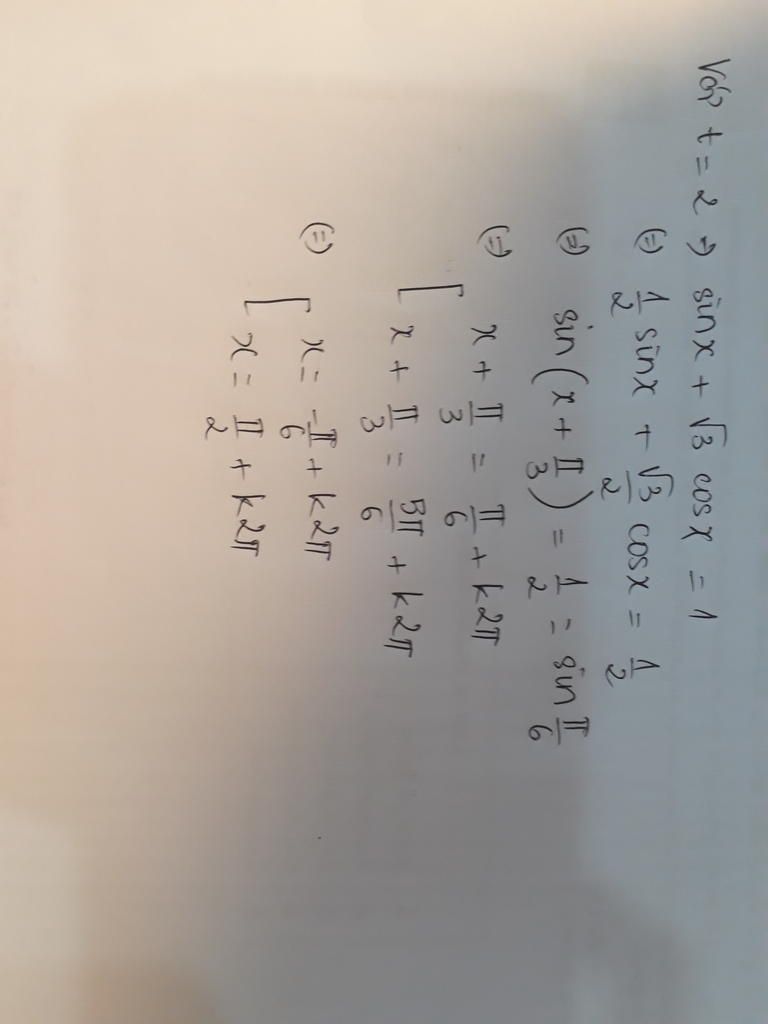 Với t = 2 => sinx + √3 cosx = 1
(=) 1/2 sinx + √3/2 cosx = 1/2
(=) sin(x + π/3) = 1/2 = sin π/6
(=) [ x + π/3 = π/6 + k2π
x + π/3 = 5π/6 + k2π
(=) [ x = -π/6 + k2π
x = π/2 + k2π